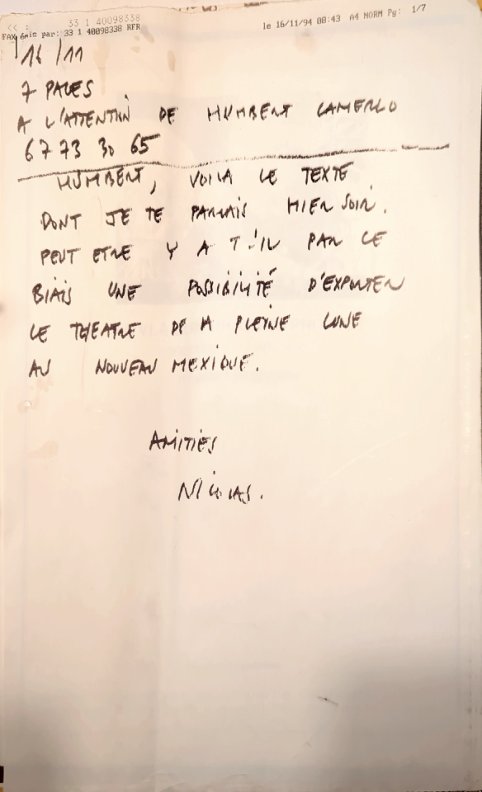 << : 33 1 40098338
FAX émis par: 33 1 40098338 RFR le 16/11/94 08:43 A4 NORM Pg: 1/7
16/11
7 PAGES
A L'ATTENTION DE HUMBERT CAMERLO
67 73 30 65
HUMBERT, VOILA LE TEXTE
DONT JE TE PARLAIS HIER SOIR.
PEUT ETRE Y A T'IL PAR CE
BIAIS UNE POSSIBILITÉ D'EXPORTER
LE THEATRE DE LA PLEINE LUNE
AU NOUVEAU MEXIQUE.
AMITIÉS
NICOLAS.